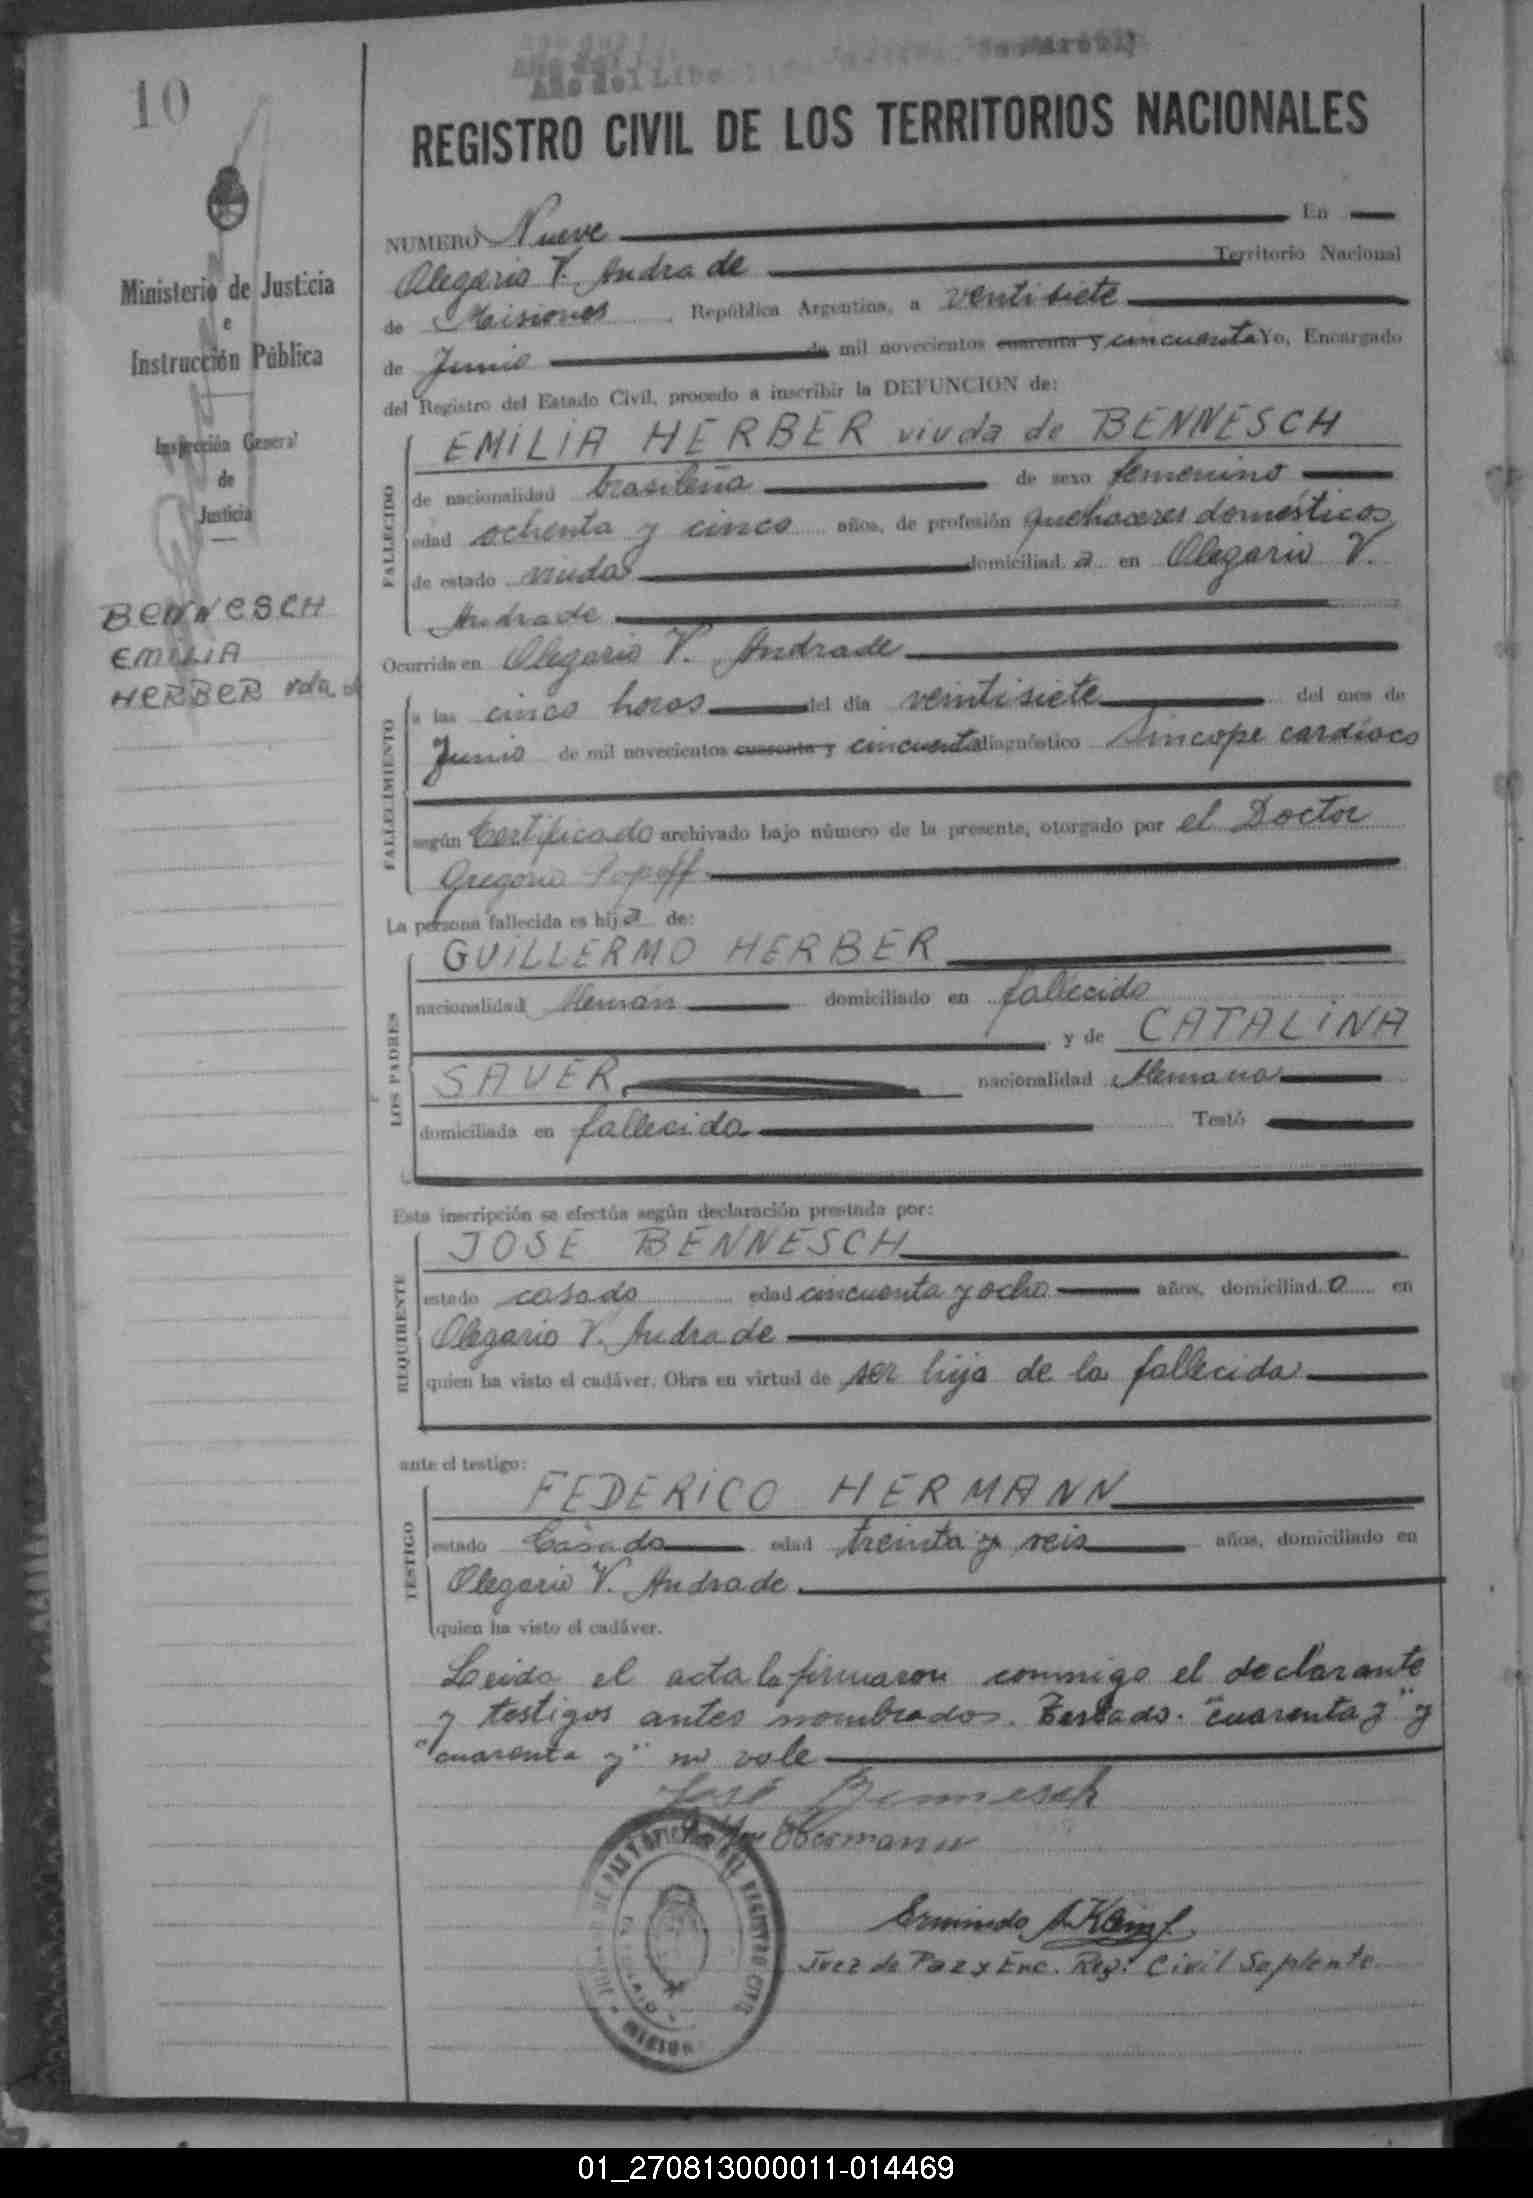 10
Año del Libe
REGISTRO CIVIL DE LOS TERRITORIOS NACIONALES
Ministerio de Justicia
e
Instrucción Pública
Inspección General
de
Justicia
BENNESCH
EMILIA
HERBER vda. de
NUMERO Nueve En
Olegario V. Andrade Territorio Nacional
de Misiones, República Argentina, a ventisiete
de Junio de mil novecientos cuarenta y cincuenta Yo, Encargado
del Registro del Estado Civil, procedo a inscribir la DEFUNCION de:
FALLECIDO
EMILIA HERBER viuda de BENNESCH
de nacionalidad brasileña de sexo femenino
edad ochenta y cinco años, de profesión quehaceres domésticos
de estado viuda domiciliad a en Olegario V.
Andrade
Ocurrida en Olegario V. Andrade
FALLECIMIENTO
a las cinco horas del día veintisiete del mes de
Junio de mil novecientos cuarenta y cincuenta diagnóstico Síncope cardíaco
según Certificado archivado bajo número de la presente, otorgado por el Doctor
Gregorio Popoff
La persona fallecida es hij a de:
LOS PADRES
GUILLERMO HERBER
nacionalidad Alemán domiciliado en fallecido
y de CATALINA
SAUER nacionalidad Alemana
domiciliada en fallecida Testó
Esta inscripción se efectúa según declaración prestada por:
REQUIRENTE
JOSE BENNESCH
estado casado edad cincuenta y ocho años, domiciliad o en
Olegario V. Andrade
quien ha visto el cadáver. Obra en virtud de ser hijo de la fallecida
ante el testigo:
TESTIGO
FEDERICO HERMANN
estado Casado edad treinta y seis años, domiciliado en
Olegario V. Andrade
quien ha visto el cadáver.
Leida el acta la firmaron conmigo el declarante
y testigos antes nombrados. Testado. "cuarenta y" y
"cuarenta y" no vale
José Bennesch
Hermann
Ermindo
Juez de Paz y Enc. Reg. Civil Suplente
DE PAZ Y OFICINA DEL REGISTRO CIVIL
MISIONES
01_270813000011-014469